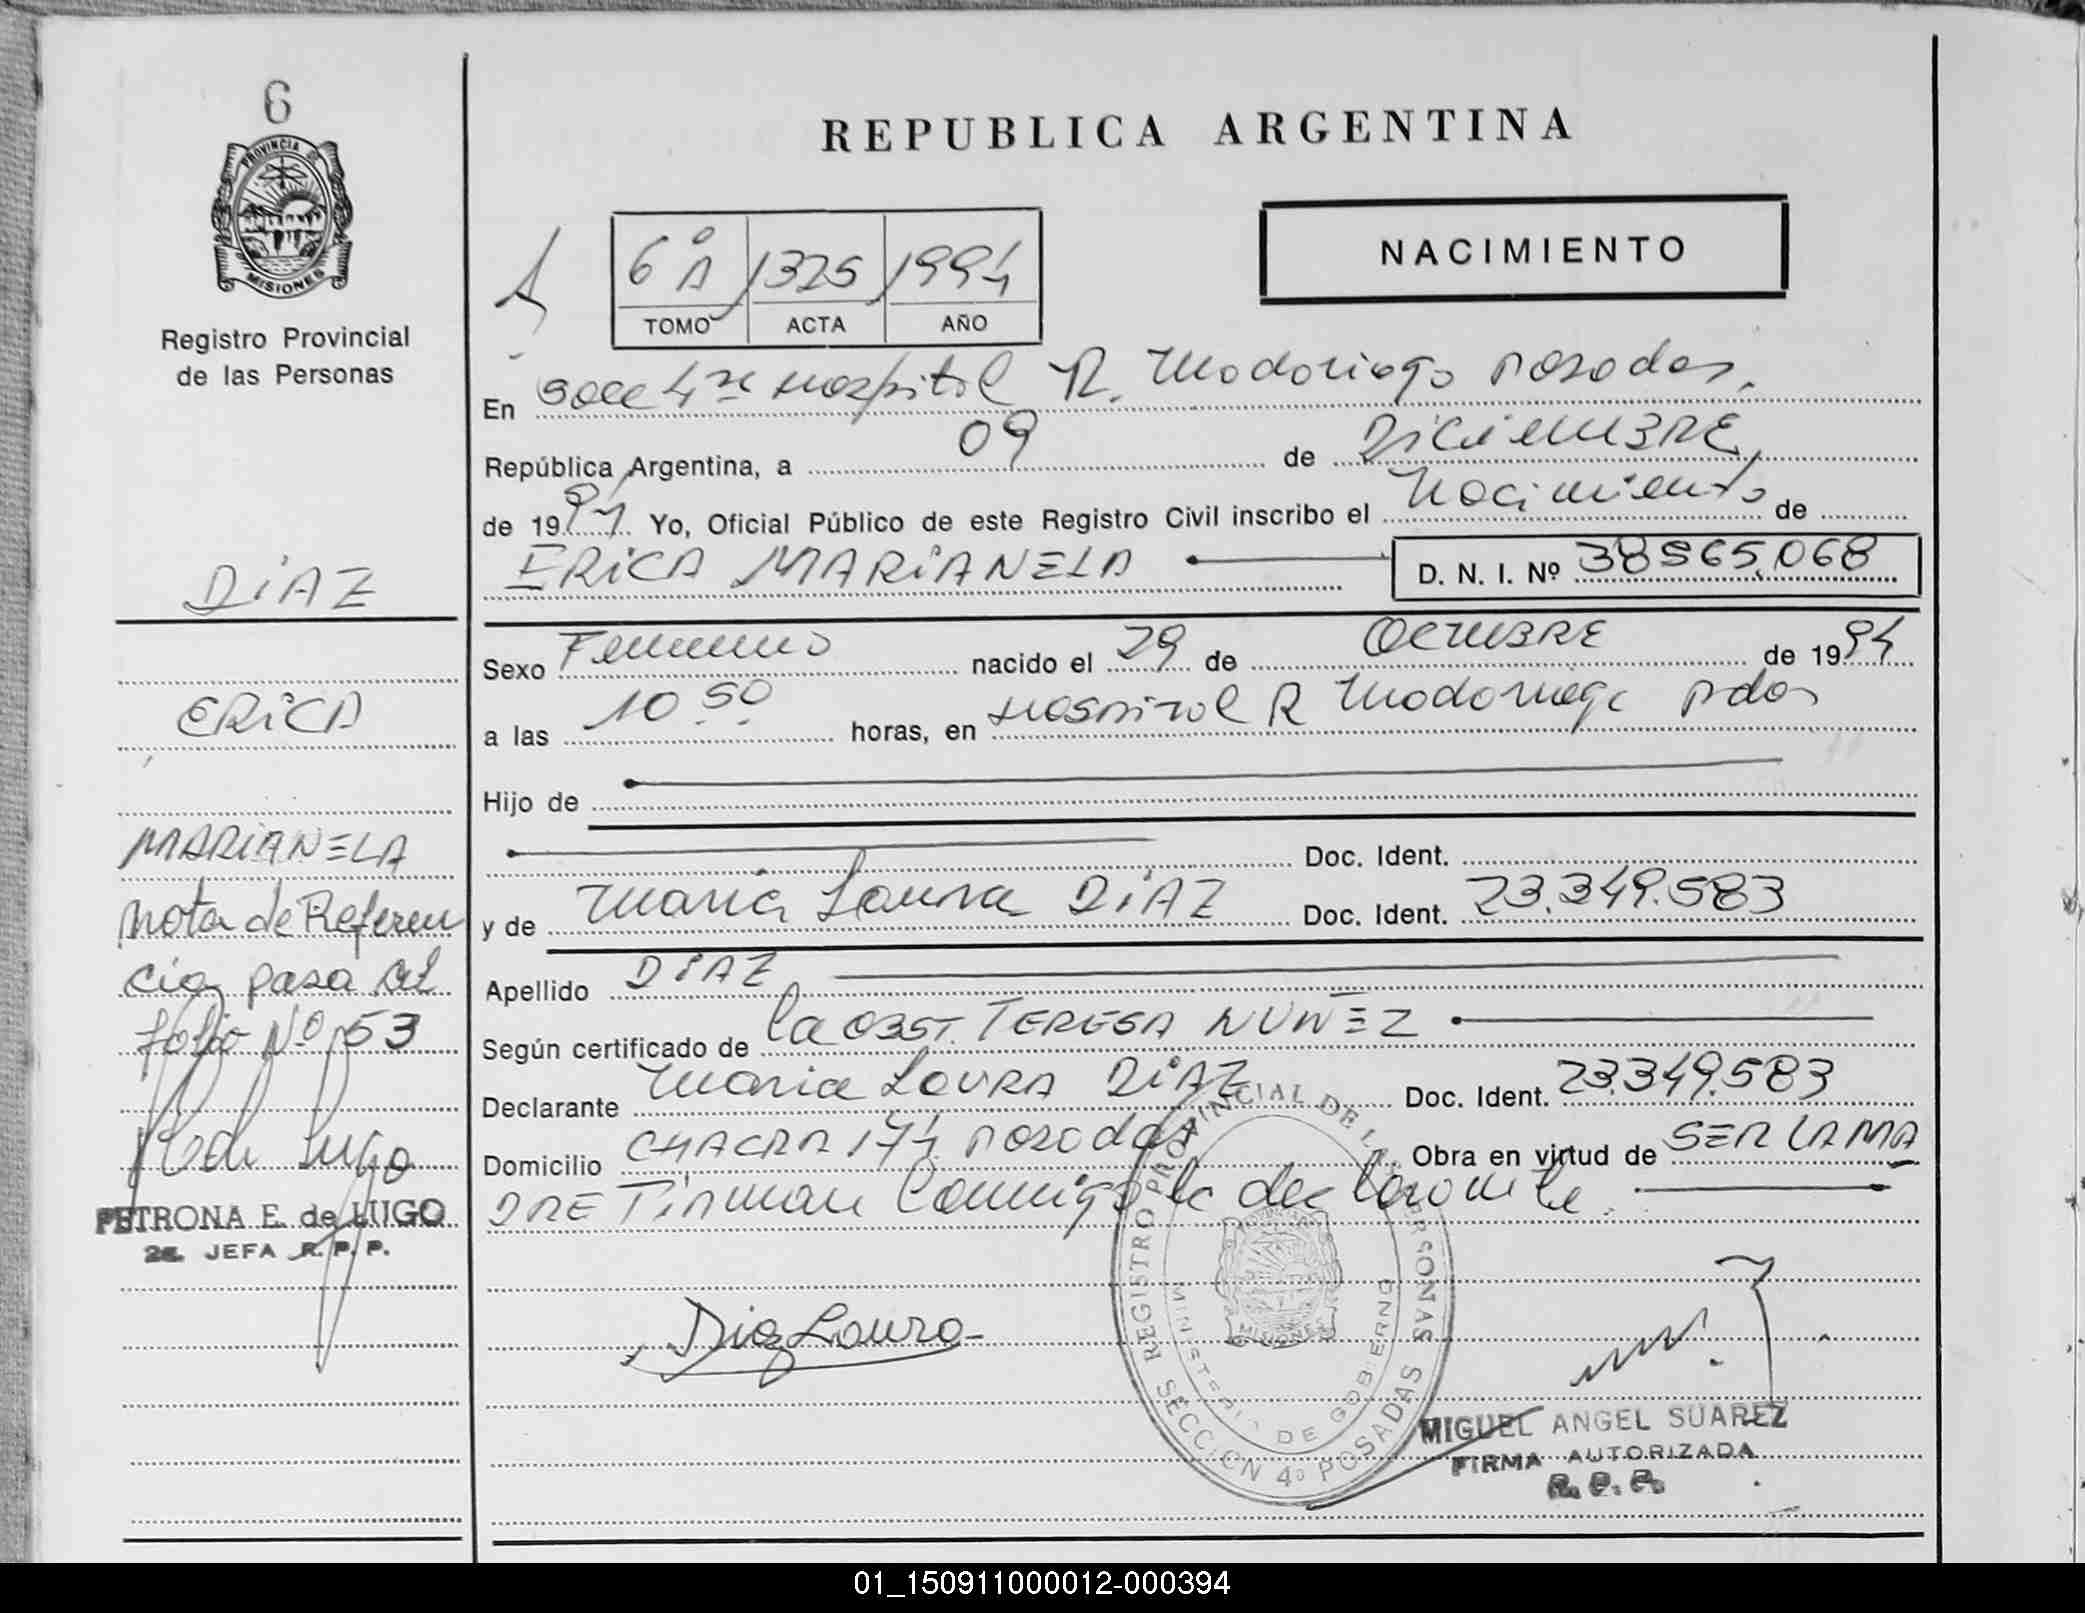 6
PROVINCIA DE
MISIONES
Registro Provincial
de las Personas
DiAZ
ERiCA
MARiANELA
Nota de Referen
cia pasa al
folio Nº 53
PETRONA E. de LUGO
2a. JEFA R. P. P.
REPUBLICA ARGENTINA
NACIMIENTO
6º A 1325 1994
TOMO ACTA AÑO
En Secc 4ta Hospital R. Madariaga Posadas.
República Argentina, a 09 de DiCiEMBRE
de 1994 Yo, Oficial Público de este Registro Civil inscribo el Nacimiento de
ERiCA MARiANELA D. N. I. Nº 38565.068
Sexo Femenino nacido el 29 de OCTUBRE de 1994
a las 10 50 horas, en Hospital R Madariaga Pdas
Hijo de
Doc. Ident.
y de Maria Laura DiAZ Doc. Ident. 23.349.583
Apellido DiAZ
Según certificado de la OBST. TERESA NUÑEZ
Declarante Maria LauRA DiAZ Doc. Ident. 23.349.583
Domicilio CHACRA 174 Posadas Obra en virtud de SER LA MA
DRE Firman Conmigo la declarante.
Diaz Laura
REGISTRO PROVINCIAL DE LAS PERSONAS
MINISTERIO DE GOBIERNO
MISIONES
SECCION 4º POSADAS
MIGUEL ANGEL SUAREZ
FIRMA AUTORIZADA
R. P. P.
01_150911000012-000394